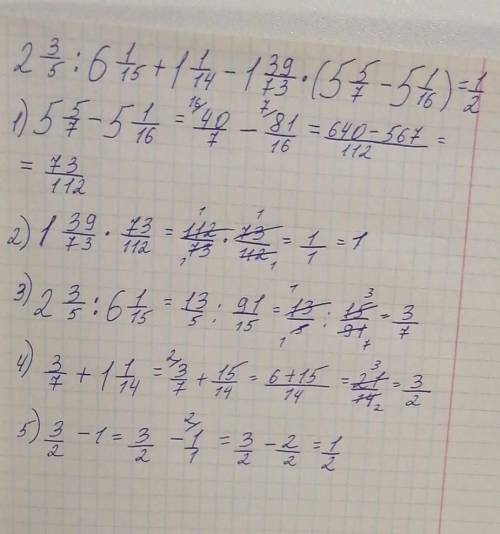 2 3/5 : 6 1/15 + 1 1/14 - 1 39/73 · (5 5/7 - 5 1/16) = 1/2
1) 5 5/7 - 5 1/16 = 16/ 40/7 - 7/ 81/16 = 640-567/112 =
= 73/112
2) 1 39/73 · 73/112 = 112/73 · 73/112 = 1/1 = 1
3) 2 3/5 : 6 1/15 = 13/5 : 91/15 = 13/5 : 15/91 = 3/7
4) 3/7 + 1 1/14 = 2/ 3/7 + 15/14 = 6+15/14 = 21/14 = 3/2
5) 3/2 - 1 = 3/2 - 2/ 1/1 = 3/2 - 2/2 = 1/2